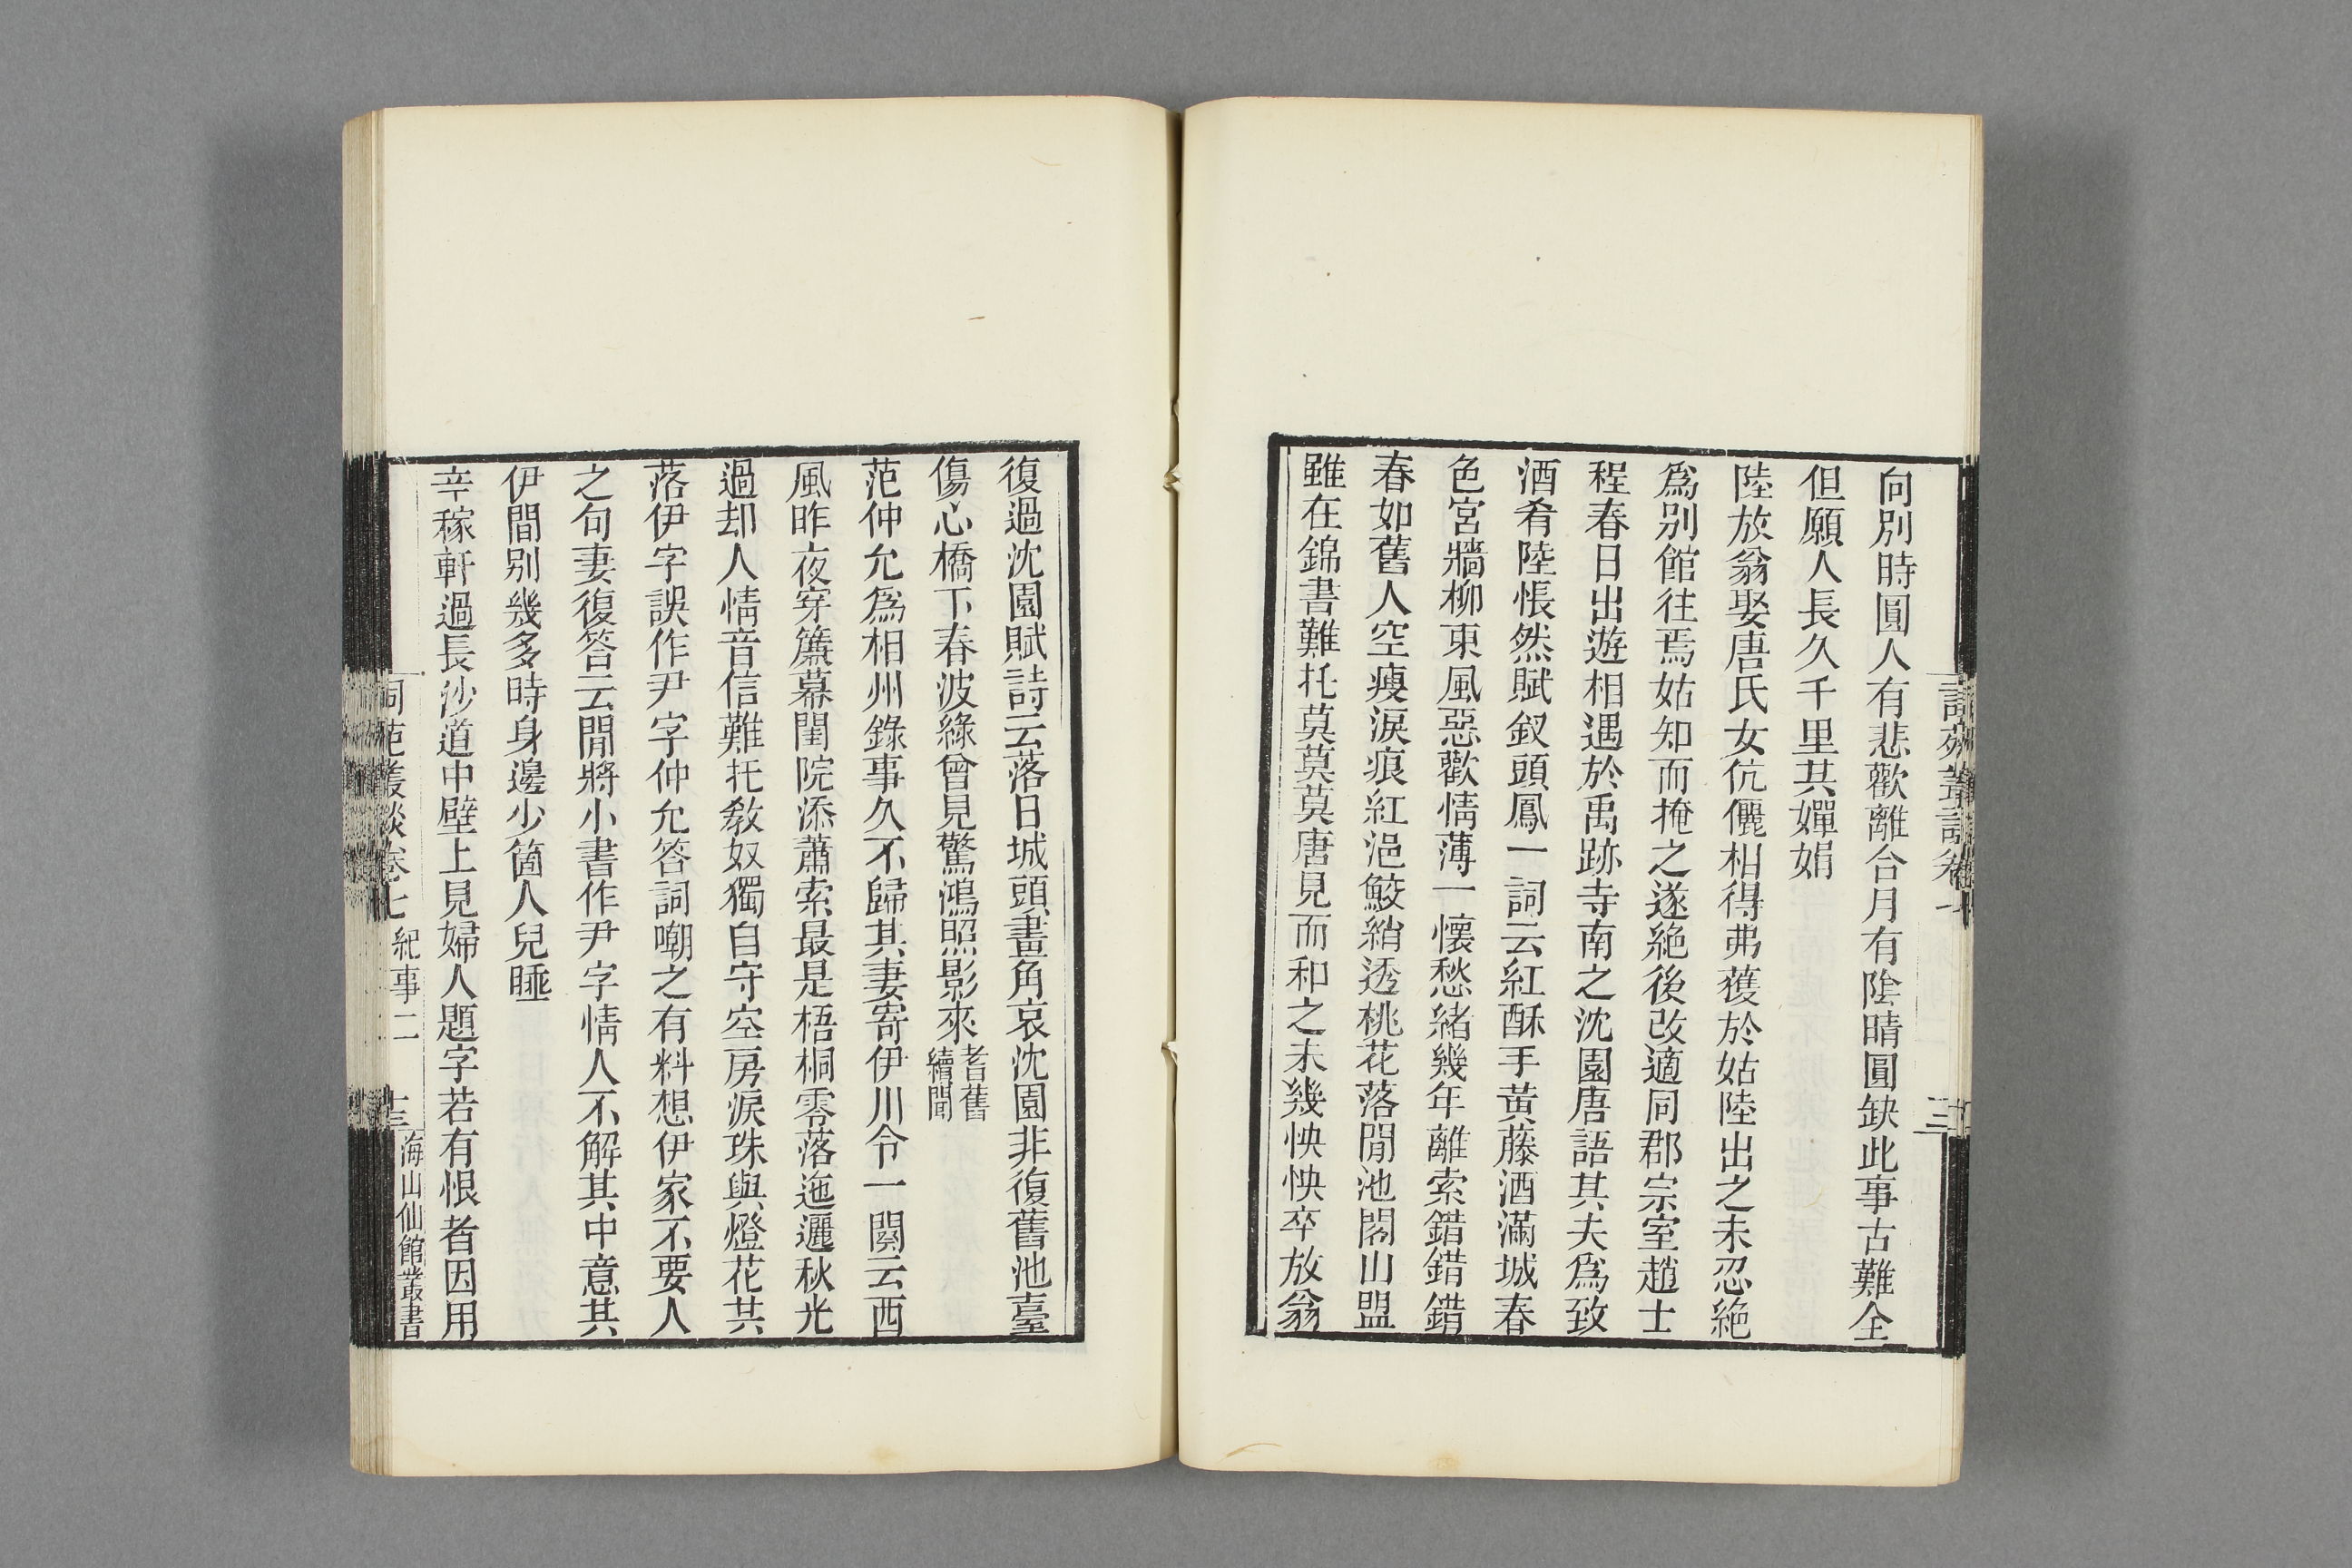 向別時圓人有悲歡離合月有陰晴圓缺此事古難全
但願人長久千里共嬋娟
陸放翁娶唐氏女伉儷相得弗獲於姑陸出之未忍絶
爲別館往焉姑知而掩之遂絶後改適同郡宗室趙士
程春日出遊相遇於禹跡寺南之沈園唐語其夫爲致
酒肴陸悵然賦釵頭鳳一詞云紅酥手黃藤酒滿城春
色宮牆柳東風惡歡情薄一懷愁緒幾年離索錯錯錯
春如舊人空瘦淚痕紅浥鮫綃透桃花落閒池閣山盟
雖在錦書難托莫莫莫唐見而和之未幾怏怏卒放翁
復過沈園賦詩云落日城頭畫角哀沈園非復舊池臺
傷心橋下春波綠曾見驚鴻照影來耆舊
續聞
范仲允爲相州錄事久不歸其妻寄伊川令一闋云西
風昨夜穿簾幕閨院添蕭索最是梧桐零落迤邐秋光
過却人情音信難托敎奴獨自守空房淚珠與燈花共
落伊字誤作尹字仲允答詞嘲之有料想伊家不要人
之句妻復答云閒將小書作尹字情人不解其中意共
伊間别幾多時身邊少箇人兒睡
辛稼軒過長沙道中壁上見婦人題字若有恨者因用
詞苑叢談卷七 紀事二 十三 海山仙館叢書